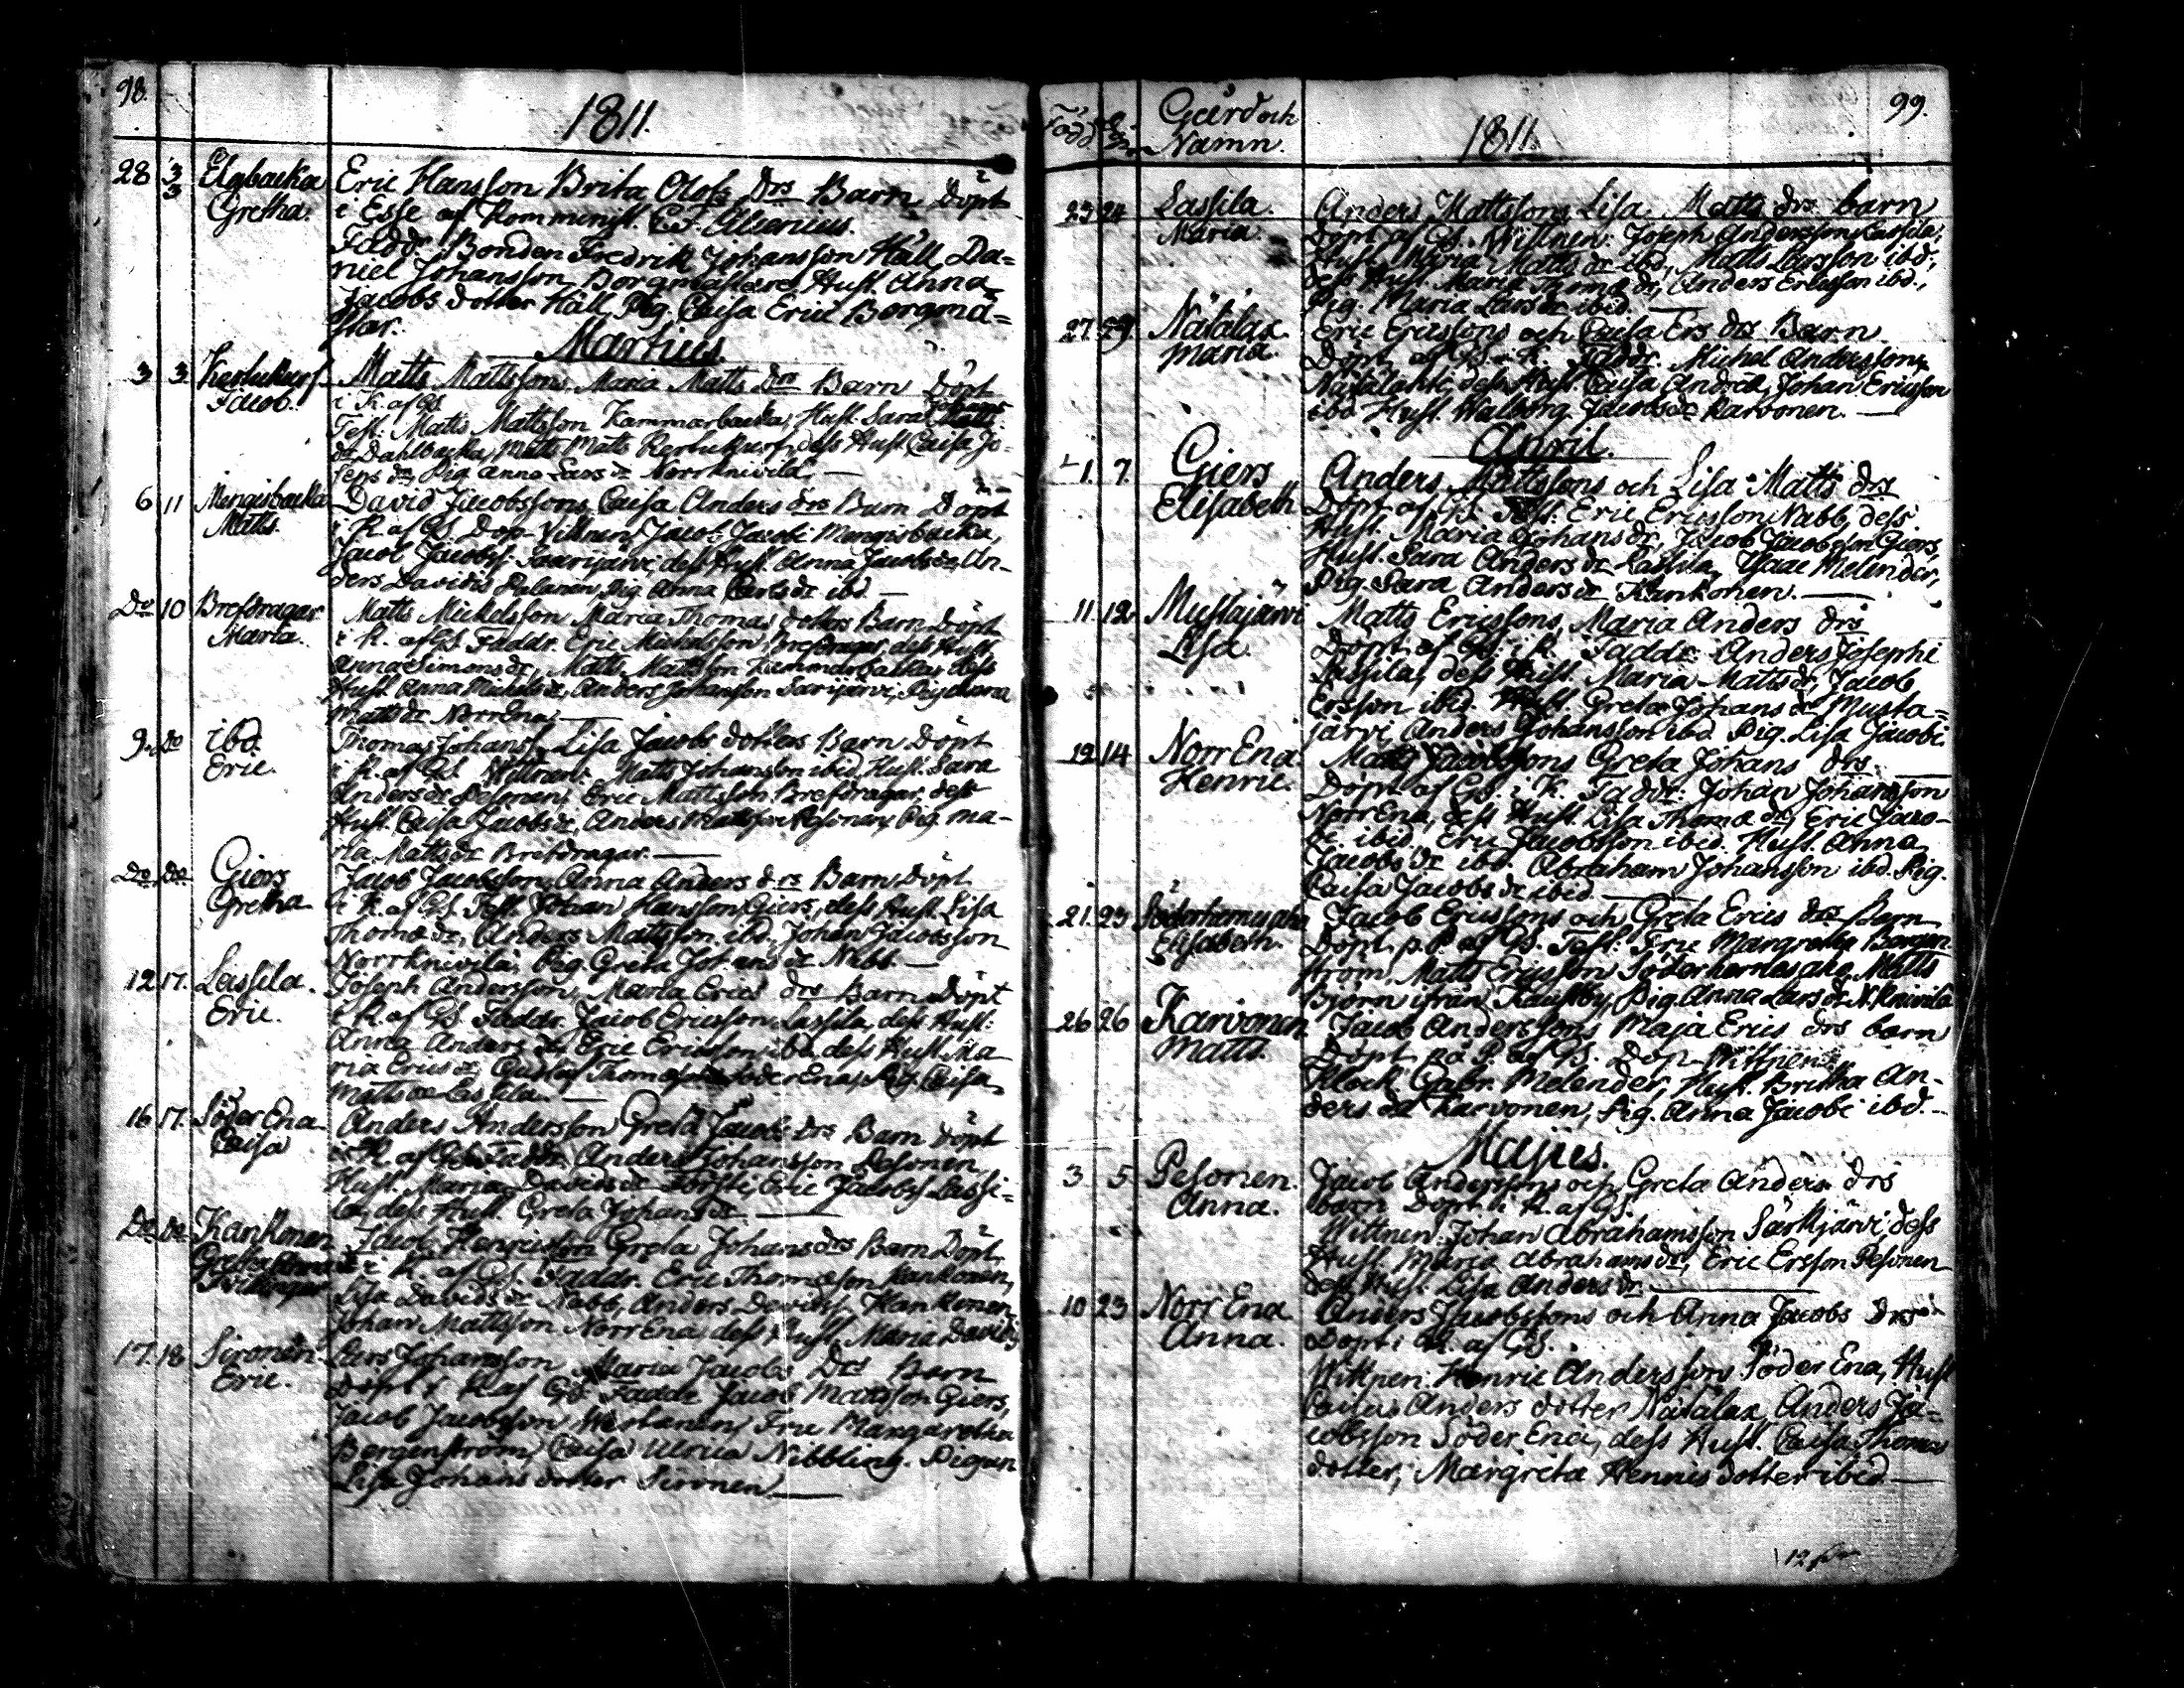 98.
1811.
28 3/3 Elgbacka Eric Hansson Brita Olofs Drs Barn Döpt
Gretha. i Esse af Komminist.
Faddr. Bonden Fredrik Johansson Häll, Da=
niel Johansson Borgmästare, Hust. Anna
Jacobs dotter Häll, Pig. Caisa Eric Borgmä=
star.
Martius.
3 3 Matts Mattssons Maria Matts Drs Barn Döpt
Jacob. i K. af GS
Test. Matts Mattsson Kammarbacka, Hust. Sara
dr Dahlbacka, Matts Matts dess Hust. Caisa Jo-
seps dr, Pig Anna Lars dr Norrknivilä. —
6 11 Mengisbacka David Jacobssons Caisa Anders drs Barn Döpt
Matts. i K. af GS. Dop-Vittnen Jacob Jacobi Mengisbacka,
Jacob Jacobss. Saarijärvi, dess Hust. Anna Jacobsdr, An-
ders Davidis Pig. Anna Lars dr ibd —
Do 10 Brefdragar Matts Mickelsson Maria Thomas dotters Barn Döpt
Maria. i K. af GS Faddr. Eric Mickelsson Brefdragar, dess Hust.
Anna Simons dr, Matts Mattsson Kammarbacka, dess
Hust. Anna Michels dr, Anders Johansson Sarijärvi, Pig Anna
Matts dr Norr Ena, —
9. Do ibd. Thomas Johanss. Lisa Jacobs dotters Barn Döpt
Eric. i K. af GS Vittnen: Matts Johansson ibid, Hust. Sara
Anders dr Pesonen, Eric Mattsson Brefdragar, dess
Hust. Caisa Jacobs dr, Anders Mattsson Pesonen, Pig. Ma-
ria Matts dr Brefdragar. —
Do Do Giers Jacob Jacobsson, Anna Anders drs Barn Döpt
Gretha i K. af GS. Test. Johan Hansson Giers, dess Hust. Lisa
Thomæ dr, Anders Mattsson ibd., Johan Jacobsson
Norrknivilä, Pig. Greta Johans dr Nabb. —
12 17. Lassila. Joseph Andersson, Maria Erics drs Barn Döpt
Eric. i K. af GS Faddr. Jacob Ericsson Lassila, dess Hust.
Anna Anders dr, Eric Ericsson ibd. dess Hust. Ma
ria Erics dr, Gustaf Thomasson Söder Ena, Pig. Caisa
Matts dr Lassila. —
16 17. Söder Ena Anders Andersson Greta Jacobs drs Barn Döpt
Caisa i K. af GS. Faddr. Anders Johansson Pesonen
Hust. Maria Davids dr Eric Jacobss Lassi=
la, dess Hust. Greta Johans dr —
Do Do Kankonen Jacob Greta Johans drs Barn Döpt
Gretha i K. af GS. Faddr. Eric Thomæson Kankonen,
Lisa Davids dr Nabb, Anders Davidss. Kankonen,
Johan Mattsson Norr Ena, dess Hust. Maria Davids
17. 18 Sironen Lars Johansson Maria Jacobs Drs Barn
Eric. Döpt i K af GS. Faddr Jacob Mattsson Giers,
Jacob Jacobsson Fru Margaretha
Bergenström, Caisa Ulrica Nibbling. Pigan
Lisa Johans dotter Sironen —
99.
Född Gård och
Namn. 1811.
23 24 Lassila. Anders Mattssons Lisa Matts drs barn
Maria. Döpt af GS. Wittnen: Joseph Andersson Lassila,
Hust. Maria Matts dr ibd, Matts Larsson ibd,
dess Hust. Maria Thomæ dr, Anders Ericsson ibd.,
Pig. Maria Lars dr ibid. —
27. 29 Nätälax Eric Ericssons och Caisa Ers drs Barn.
Maria. Döpt af GS i K. Faddr. Michel Anderssons
dess Hust. Caisa Andræ, Johan Ericsson
ibd Hust. Walborg Jacobs dr Karvonen. —
April.
1. 7. Giers Anders Mattssons och Lisa Matts drs
Elisabeth Döpt af GS Test: Eric Ericsson Nabb, dess
Hust. Maria Johans dr, Jacob Jacobsson Giers,
Hust. Sara Anders dr Lassila, Isaac Melender,
Pig. Sara Anders dr Kankonen. —
11. 12. Mustajärvi Matts Ericssons Maria Anders drs
Lisa Döpt af GS i K. Faddr Anders Josephi
Lassila, dess Hust. Maria Matts dr, Jacob
Ersson ibid. Hust. Greta Johans dr Musta=
järvi Anders Johansson ibd Pig. Lisa Jacobi
12 14 Norr Ena Matts Jacobssons Greta Johans drs —
Henric. Döpt af GS. i K. Faddr: Johan Johansson
Norr Ena, dess Hust. Lisa Thomæ dr, Eric Jaco-
bi ibid. Eric Jacobsson ibid. Hust. Anna
Jacobs dr ibd. Abraham Johansson ibd. Pig.
Caisa Jacobs dr ibid. —
21. 23 Jacob Ericssons och Greta Erics drs Barn
Elisabeth. Döpt p. P af GS. Test: Fru Margretha Bergen
ström, Matts Ericsson Matts
Björn ifrån Kaustby, Pig. Anna Lars dr N. Knivila
26 26 Karvonen Jacob Anderssons Maja Erics drs barn
Matts. Döpt på P. af GS. Dop-Wittnen:
Klock. Gabr. Melender, Hust. Britha An-
ders dr Karvonen, Pig. Anna Jacobi ibd. —
Majus.
3 5 Pesonen. Jacob Anderssons och Greta Anders drs
Anna. barn Döpt i K. af GS.
Wittnen: Johan Abrahamsson Särkjärvi, dess
Hust. Maria Abrahams dr, Eric Ersson Pesonen
dess Hust. Lisa Anders dr —
10 23 Norr Ena Anders Jacobssons och Anna Jacobs drs
Anna. Döpt i K. af GS.
Wittnen: Henric Andersson Söder Ena, Hust
Caisa Anders dotter Nätälax, Anders Ja=
cobsson Söder Ena, dess Hust. Caisa Thomas
dotter, Margreta Henrics dotter ibid —
12